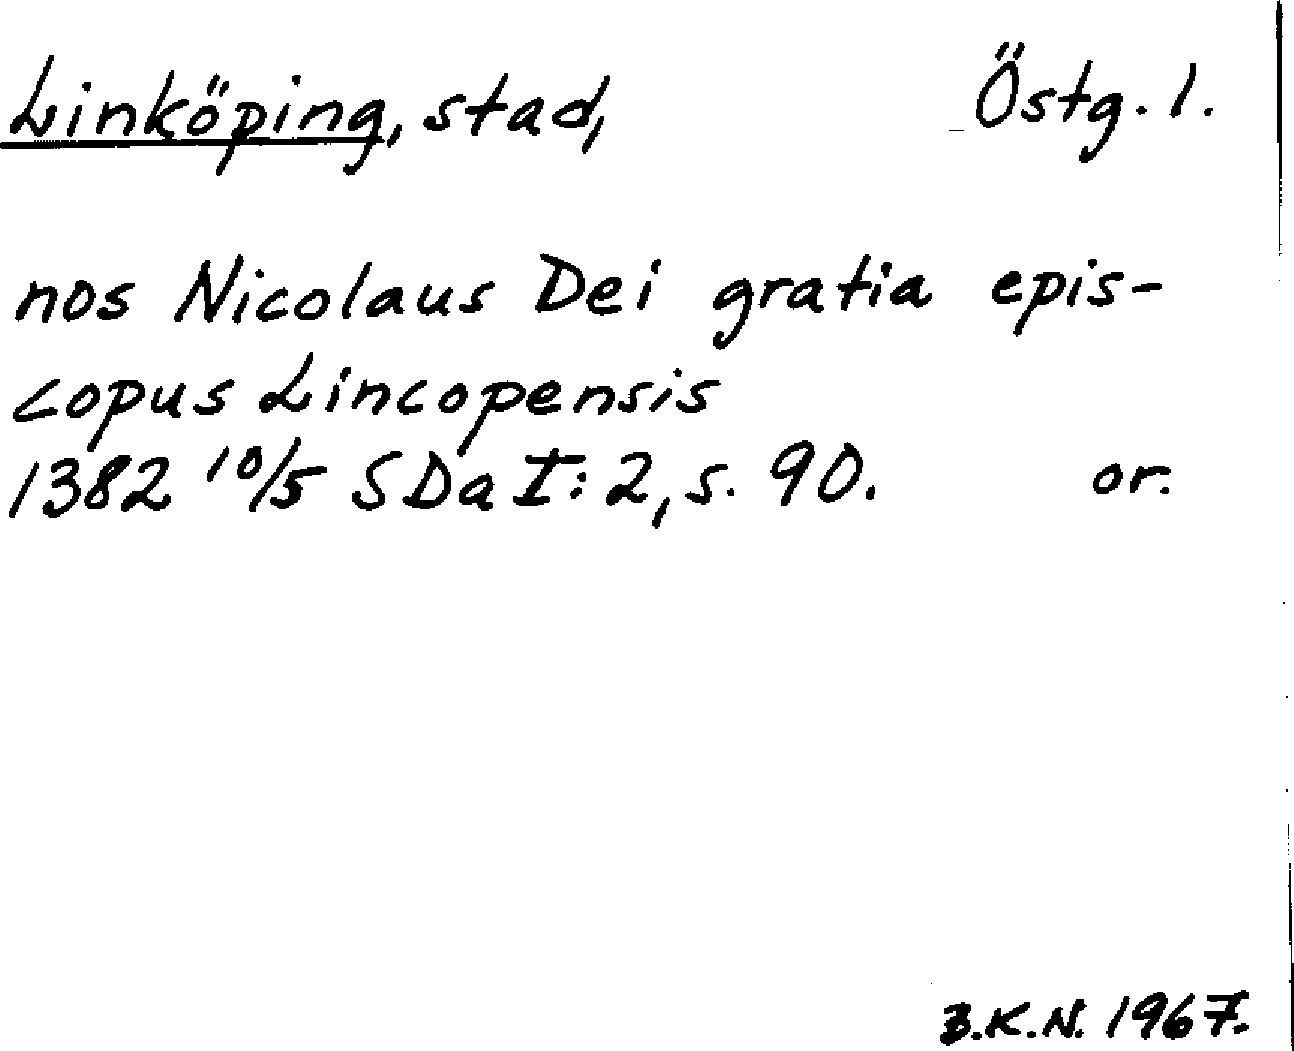 Linköping, stad, Östg. l.
nos Nicolaus Dei gratia epis-
copus Lincopensis
1382 10/5 SDa I:2, s. 90. or.
B.K.N. 1967.